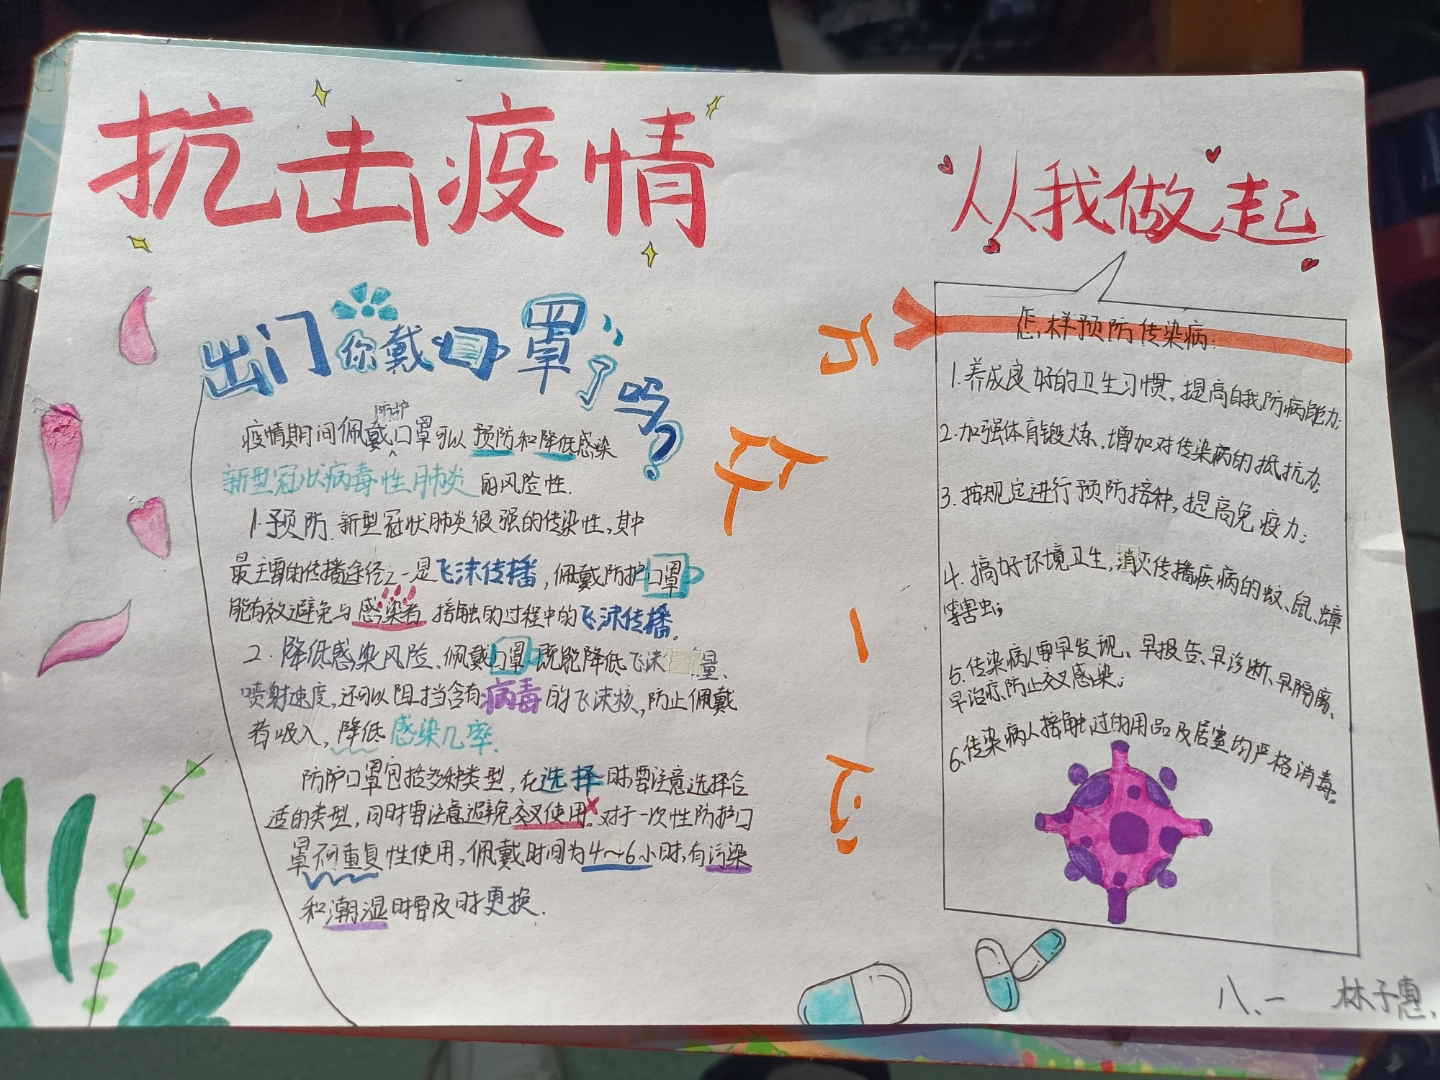 抗击疫情
从我做起
出门你戴口罩了吗?
疫情期间佩戴防护口罩可以预防和降低感染
新型冠状病毒性肺炎的风险性.
1.预防.新型冠状肺炎很强的传染性,其中
最主要的传播途径之一是飞沫传播,佩戴防护口罩
能有效避免与感染者接触的过程中的飞沫传播。
2.降低感染风险.佩戴口罩既能降低飞沫量、
喷射速度,还可以阻挡含有病毒的飞沫核,防止佩戴
者吸入,降低感染几率.
防护口罩包括多种类型,在选择时要注意选择合
适的类型,同时要注意避免交叉使用。对于一次性防护口
罩不可重复性使用,佩戴时间为4~6小时,有污染
和潮湿时要及时更换.
万众一心
怎样预防传染病:
1.养成良好的卫生习惯,提高自我防病能力;
2.加强体育锻炼、增加对传染病的抵抗力;
3.按规定进行预防接种,提高免疫力;
4.搞好环境卫生,消灭传播疾病的蚊、鼠、蟑
等害虫;
5.传染病人要早发现、早报告、早诊断、早隔离、
早治疗,防止交叉感染;
6.传染病人接触过的用品及居室均严格消毒。
八、一 林子惠.